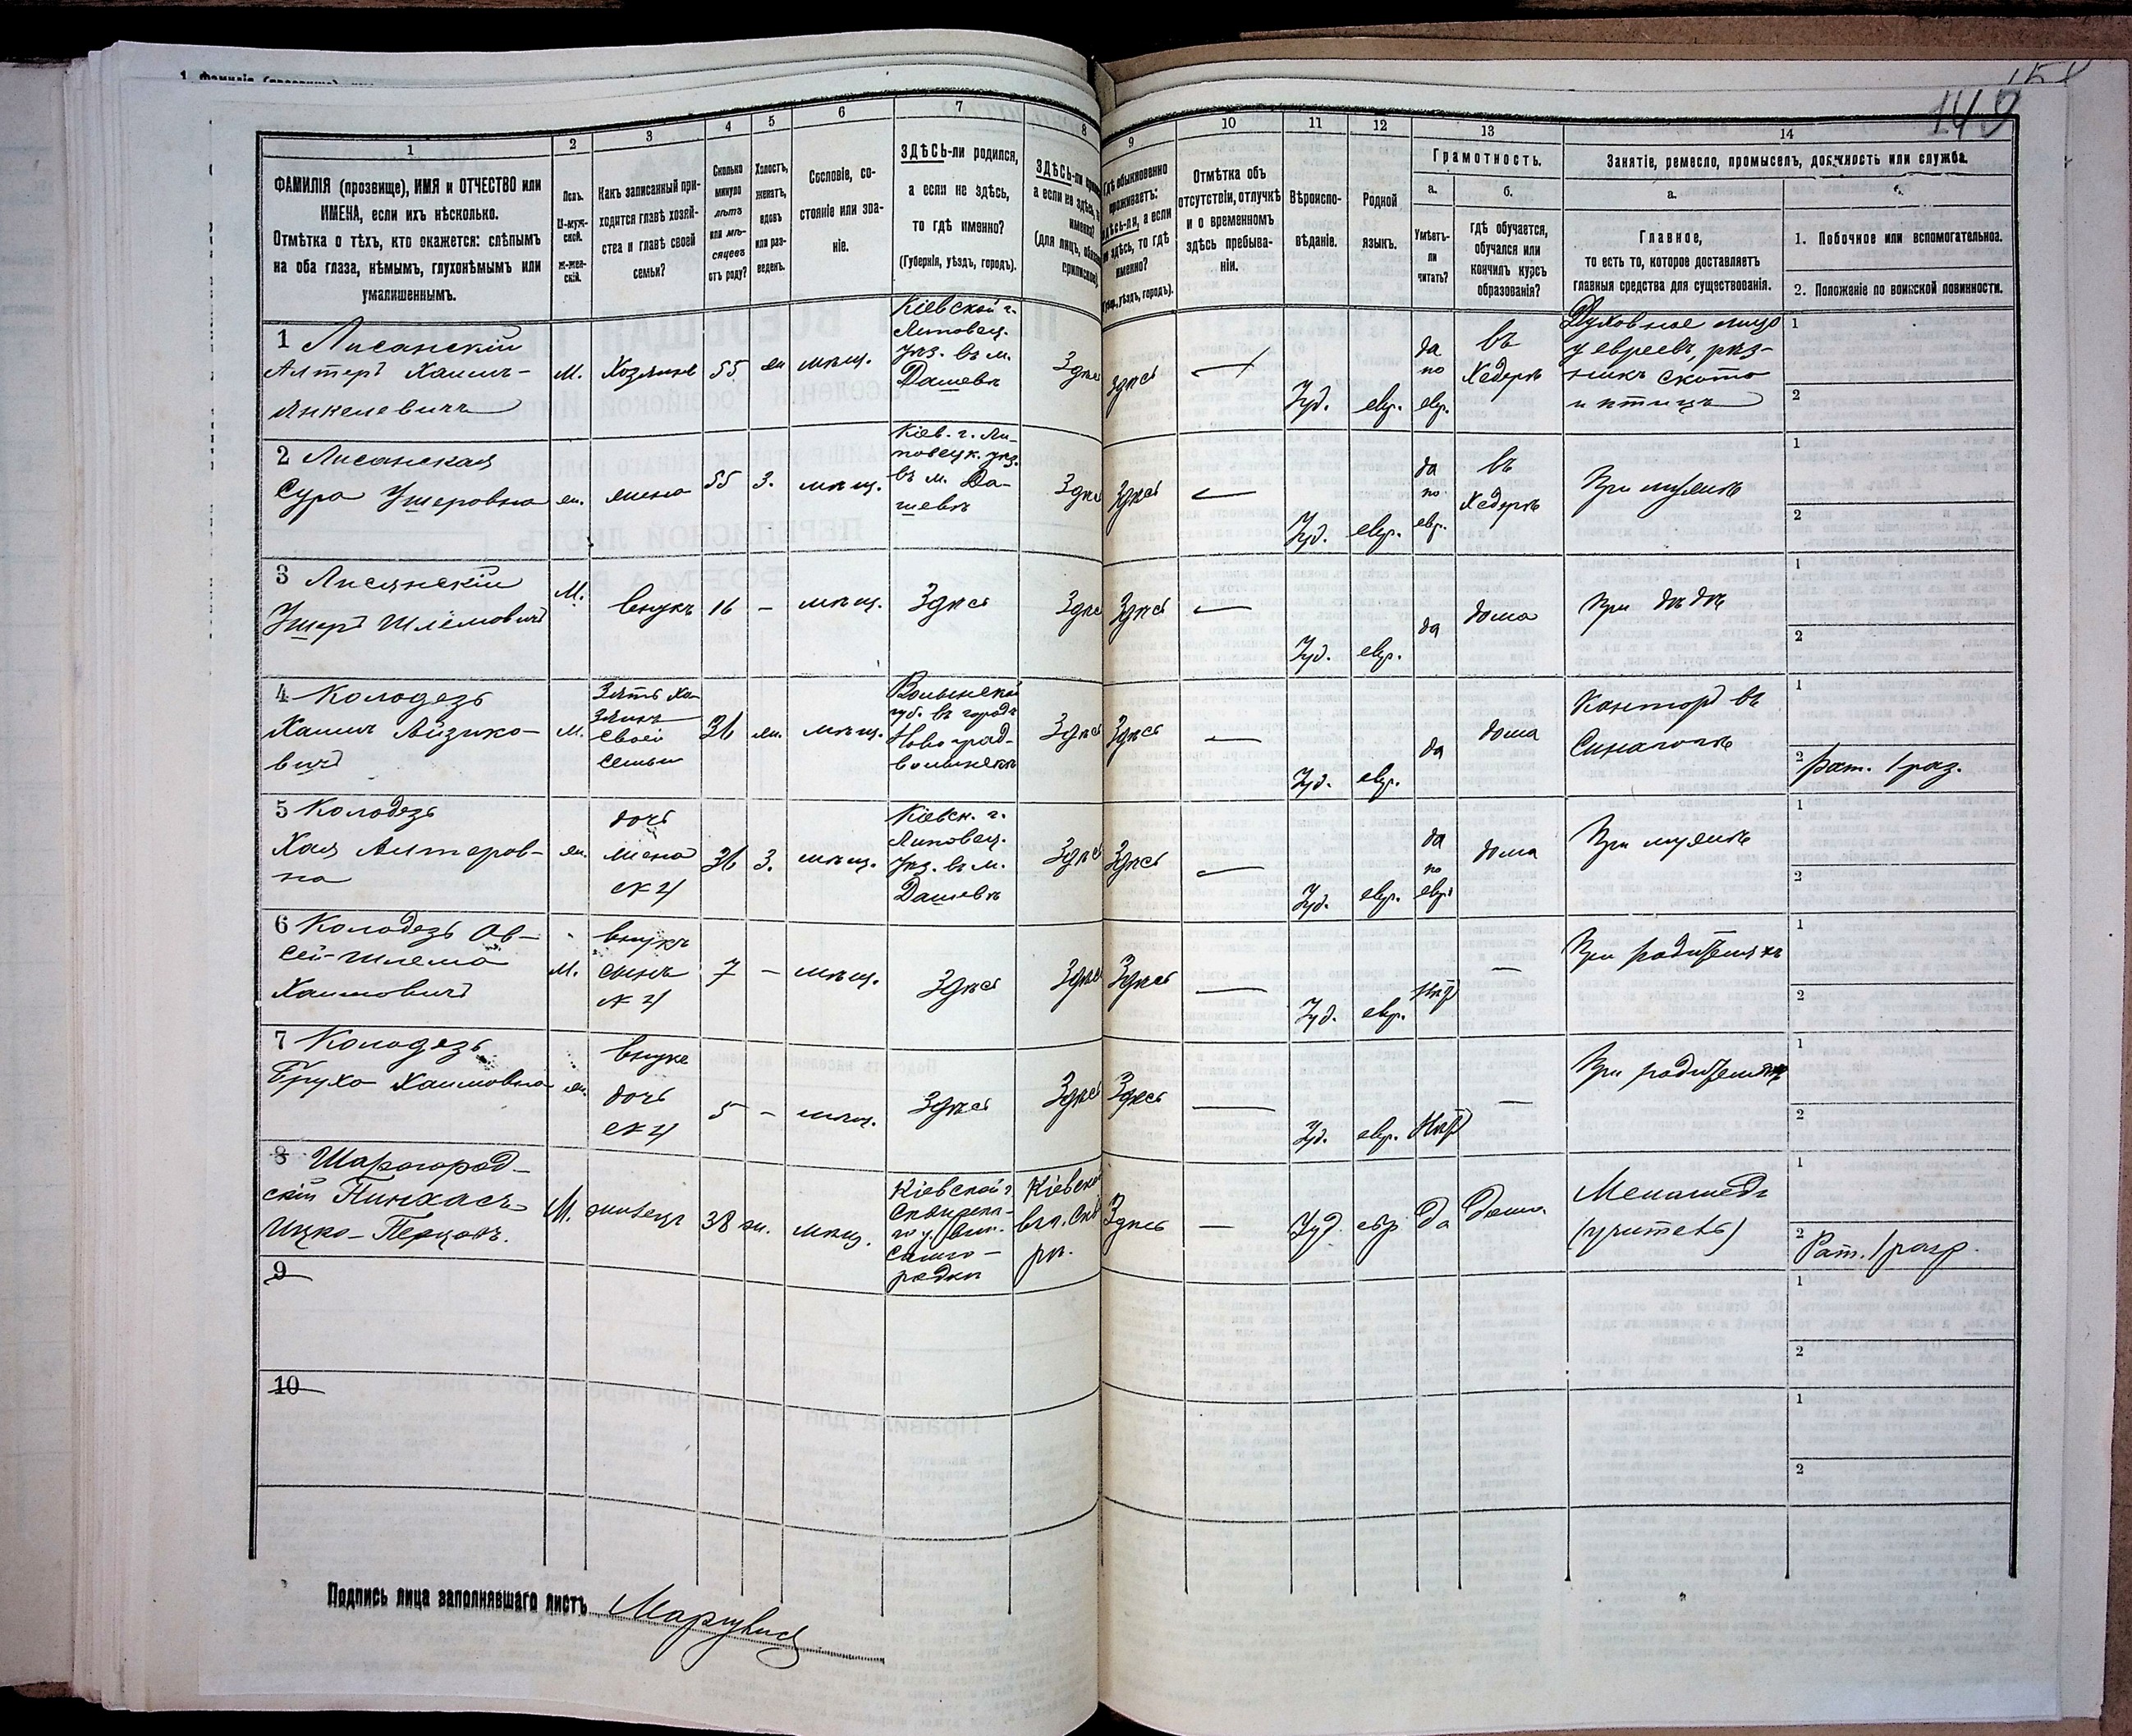 149
1
2
3
4
5
6
7
8
9
10
11
12
13
14
ФАМИЛІЯ (прозвище), ИМЯ и ОТЧЕСТВО или
ИМЕНА, если ихъ нѣсколько.
Отмѣтка о тѣхъ, кто окажется: слѣпымъ
на оба глаза, нѣмымъ, глухонѣмымъ или
умалишеннымъ.
Полъ.
М-муж-
ской.
Ж-жен-
скій.
Какъ записанный при-
ходится главѣ хозяй-
ства и главѣ своей
семьи?
Сколько
минуло
лѣтъ
или мѣ-
сяцевъ
отъ роду?
Холостъ,
женатъ,
вдовъ
или раз-
веденъ.
Сословіе, со-
стояніе или зва-
ніе.
ЗДѢСЬ-ли родился,
а если не здѣсь,
то гдѣ именно?
(Губернія, уѣздъ, городъ).
ЗДѢСЬ-ли
а если не здѣсь,
именно?
(для лицъ,
обыкновенно
проживаетъ:
ЗДѢСЬ-ли, а если
не здѣсь, то гдѣ
именно?
уѣздъ, городъ).
Отмѣтка объ
отсутствіи, отлучкѣ
и о временномъ
здѣсь пребыва-
ніи.
Вѣроиспо-
вѣданіе.
Родной
языкъ.
Грамотность.
а.
Умѣетъ-
ли
читать?
б.
гдѣ обучается,
обучался или
кончилъ курсъ
образованія?
Занятіе, ремесло, промыселъ, должность или служба.
а.
Главное,
то есть то, которое доставляетъ
главныя средства для существованія.
б.
1. Побочное или вспомогательное.
2. Положеніе по воинской повинности.
1 Лисанскій
Алтеръ Хаимъ-
Янкелевичъ
М.
Хозяинъ
55
ж
мѣщ.
Кіевской г.
Липовец.
уѣз. въ м.
Дашевѣ
Здѣсь
здѣсь
Іуд.
евр.
да
по
евр.
въ
Хедерѣ
Духовное лицо
у евреевъ, рѣз-
никъ скота
и птицъ
1
2
2 Лисанская
Сура Ушеровна
ж.
жена
55
з.
мѣщ.
Кіев. г. Ли-
повецк. уѣз.
въ м. Да-
шевѣ
Здѣсь
Здѣсь
Іуд.
евр.
да
по
евр.
въ
Хедерѣ
При мужѣ
1
2
3 Лисянскій
Ушеръ Шлемовичъ
М.
внукъ
16
–
мѣщ.
Здѣсь
Здѣсь
Здѣсь
Іуд.
евр.
да
дома
При дѣдѣ
1
2
4 Колодезь
Хаимъ Айзико-
вичъ
М.
Зять хо-
зяинъ
своей
семьи
36
ж.
мѣщ.
Волынской
губ. въ городѣ
Новоград-
волынскѣ
Здѣсь
Здѣсь
Іуд.
евр.
да
дома
Канторъ въ
Синагогѣ
1
2
Рат. 1 раз.
5 Колодезь
Хая Алтеров-
на
ж.
дочь
жена
ек 4
36
З.
мѣщ.
Кіевск. г.
Липовец.
уѣз. въ м.
Дашевѣ
Здѣсь
Здѣсь
Іуд.
евр.
да
по
евр.
дома
При мужѣ
1
2
6 Колодезь Ов-
сей-Шлема
Хаимовичъ
М.
внукъ
сынъ
ек 4
7
–
мѣщ.
Здѣсь
Здѣсь
Здѣсь
Іуд.
евр.
Нѣтъ
—
При родителяхъ
1
2
7 Колодезь
Бруха Хаимовна
ж.
внука
дочь
ек 4
5
–
мѣщ.
Здѣсь
Здѣсь
Здѣсь
Іуд.
евр.
Нѣтъ
—
При родителяхъ
1
2
8 Шарогород-
скій Пинхасъ-
Ицко-Перцовъ.
М.
жилецъ
38
ж.
мѣщ.
Кіевской г
Сквирска-
го у.
Самго-
родки
Кіевской
Здѣсь
—
Іуд.
евр.
да
дома
Меламедъ
(учитель)
1
2
Рат. 1 разр.
9
1
2
10
1
2
Подпись лица заполнявшаго листъ